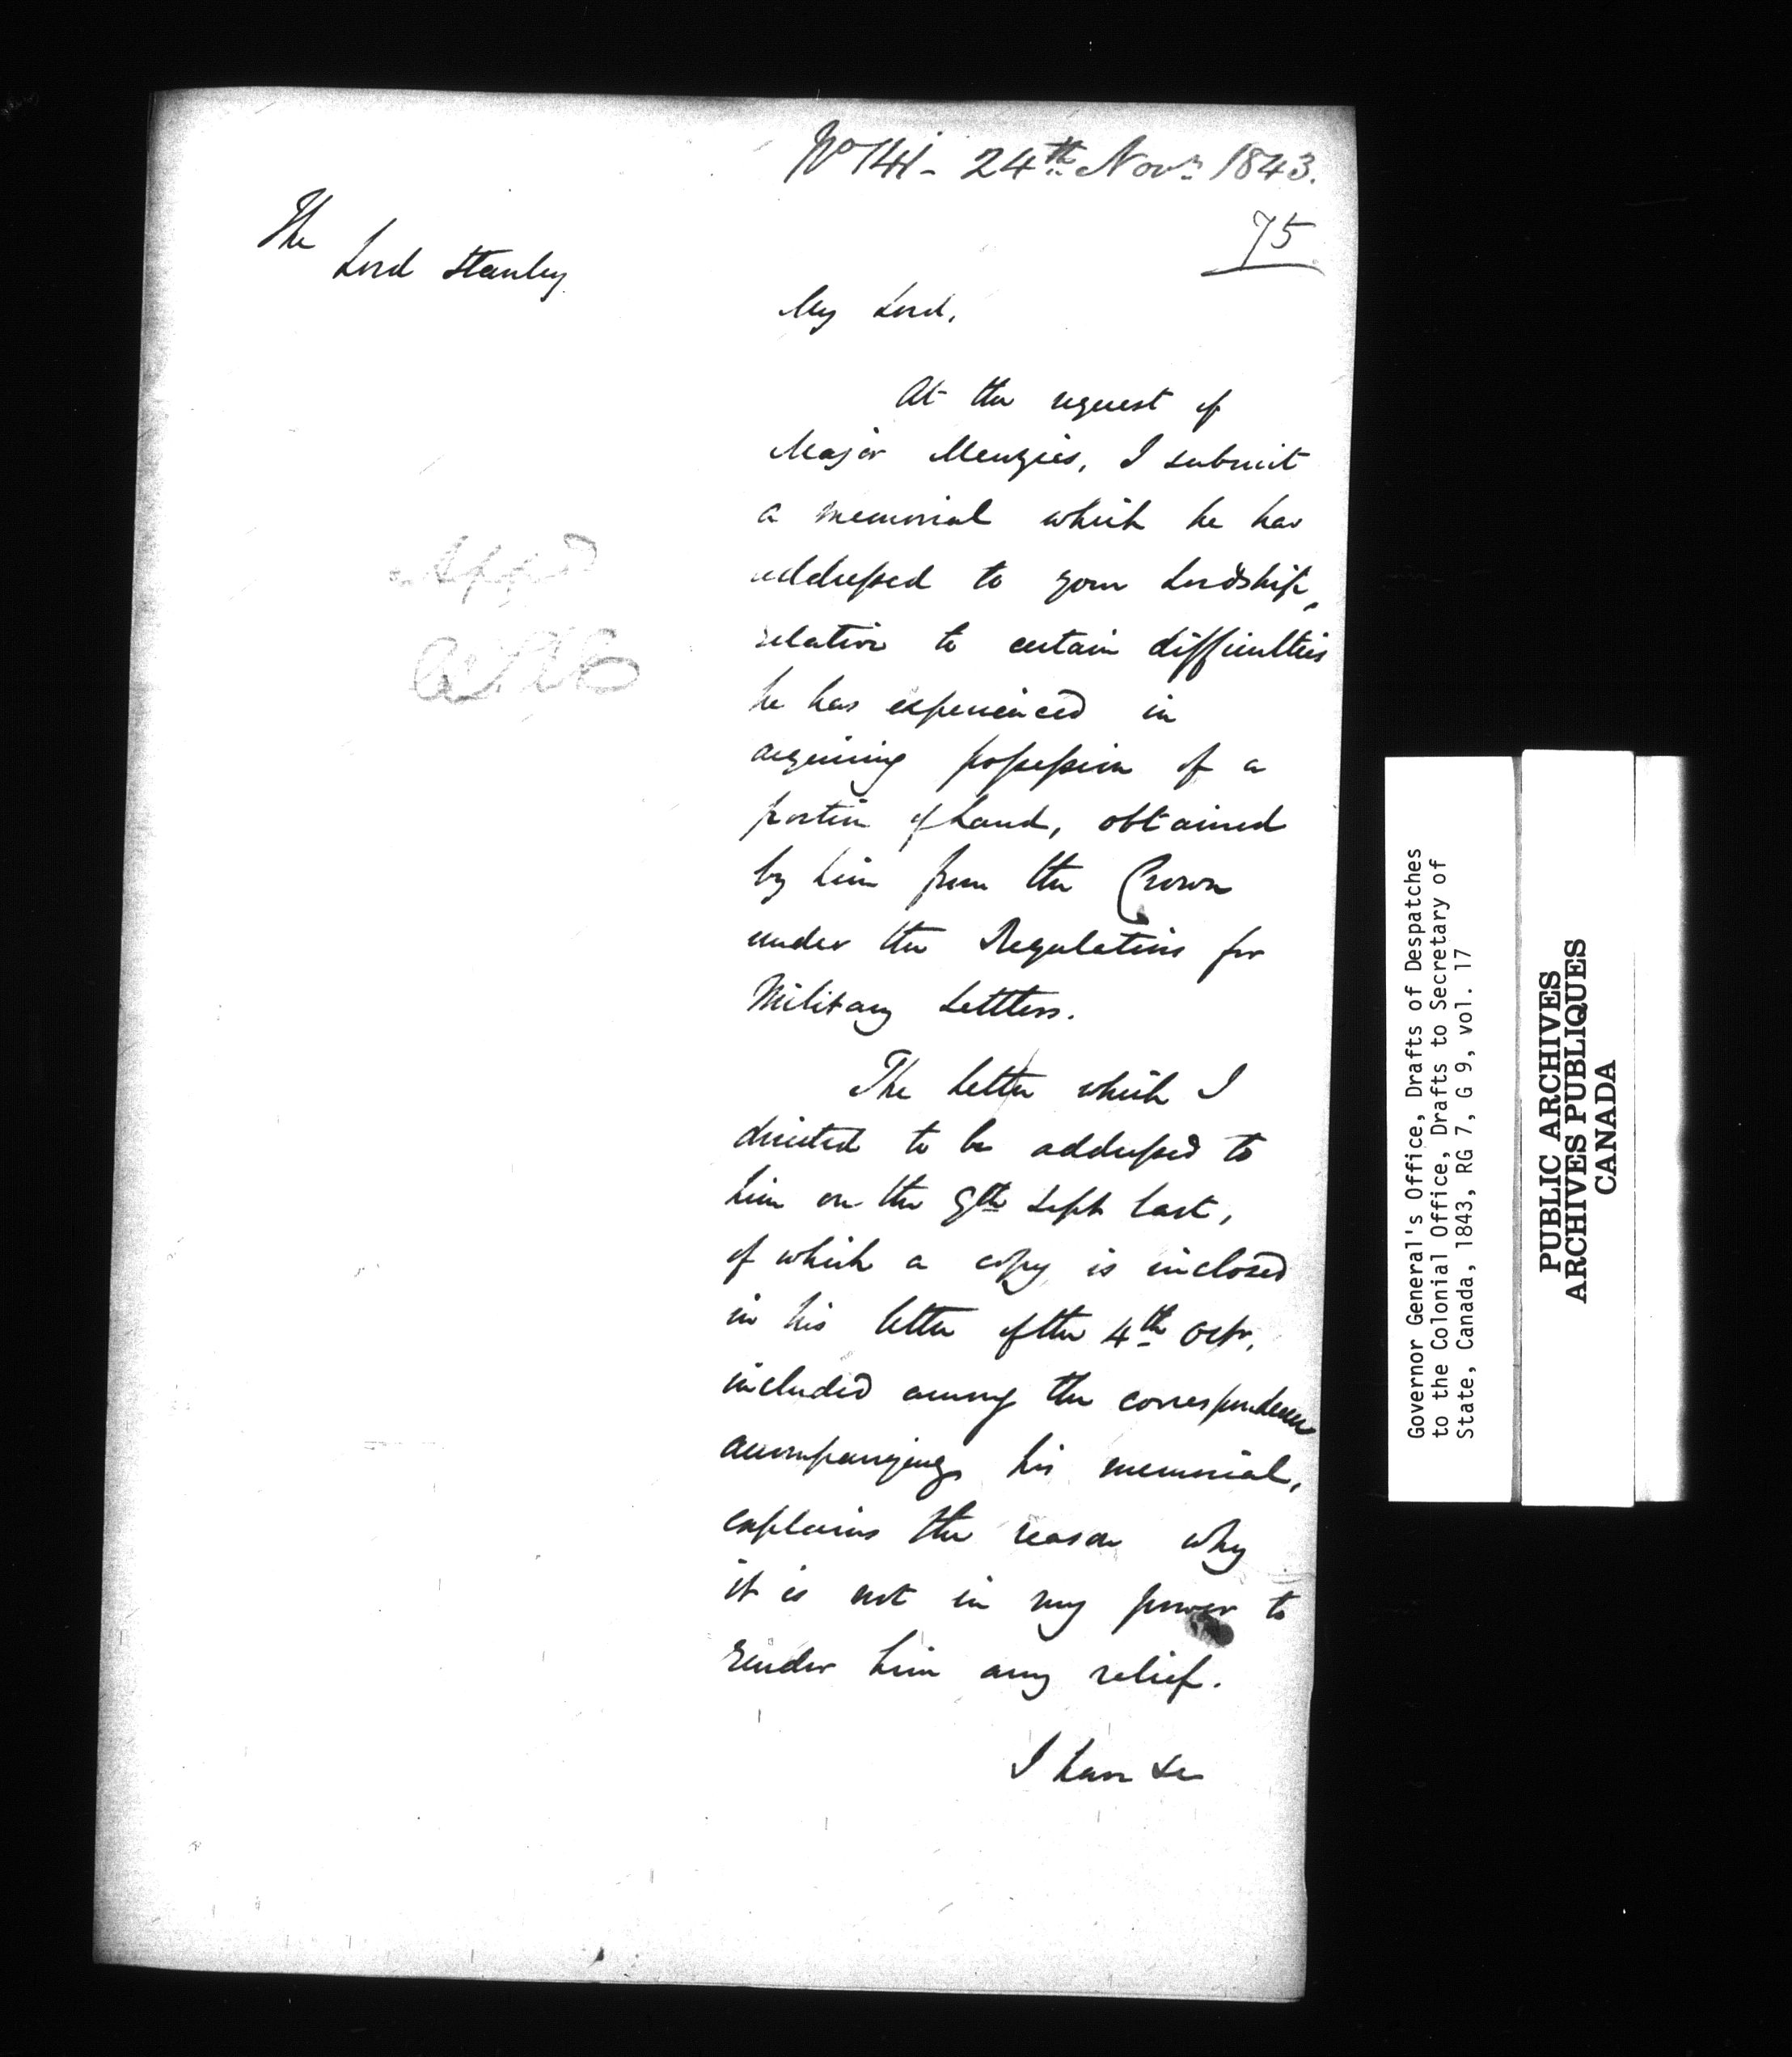 No 141 - 24th Novr. 1843.
75
The
Lord Stanley
My Lord,
At the request of
Major Menzies, I submit
a memorial which he has
addressed to your Lordship,
relative to certain difficulties
he has experienced in
acquiring possession of a
portion of Land, obtained
by him from the Crown
under the Regulations for
Military Settlers.
The letter which I
directed to be addressed to
him on the 9th Sept last,
of which a copy is inclosed
in his letter of the 4th Octr.
included among the correspondence
accompanying his memorial,
explains the reason why
it is not in my power to
render him any relief.
I have &c
Appd
Governor General's Office, Drafts of Despatches
to the Colonial Office, Drafts to Secretary of
State, Canada, 1843, RG 7, G 9, vol. 17
PUBLIC ARCHIVES
ARCHIVES PUBLIQUES
CANADA